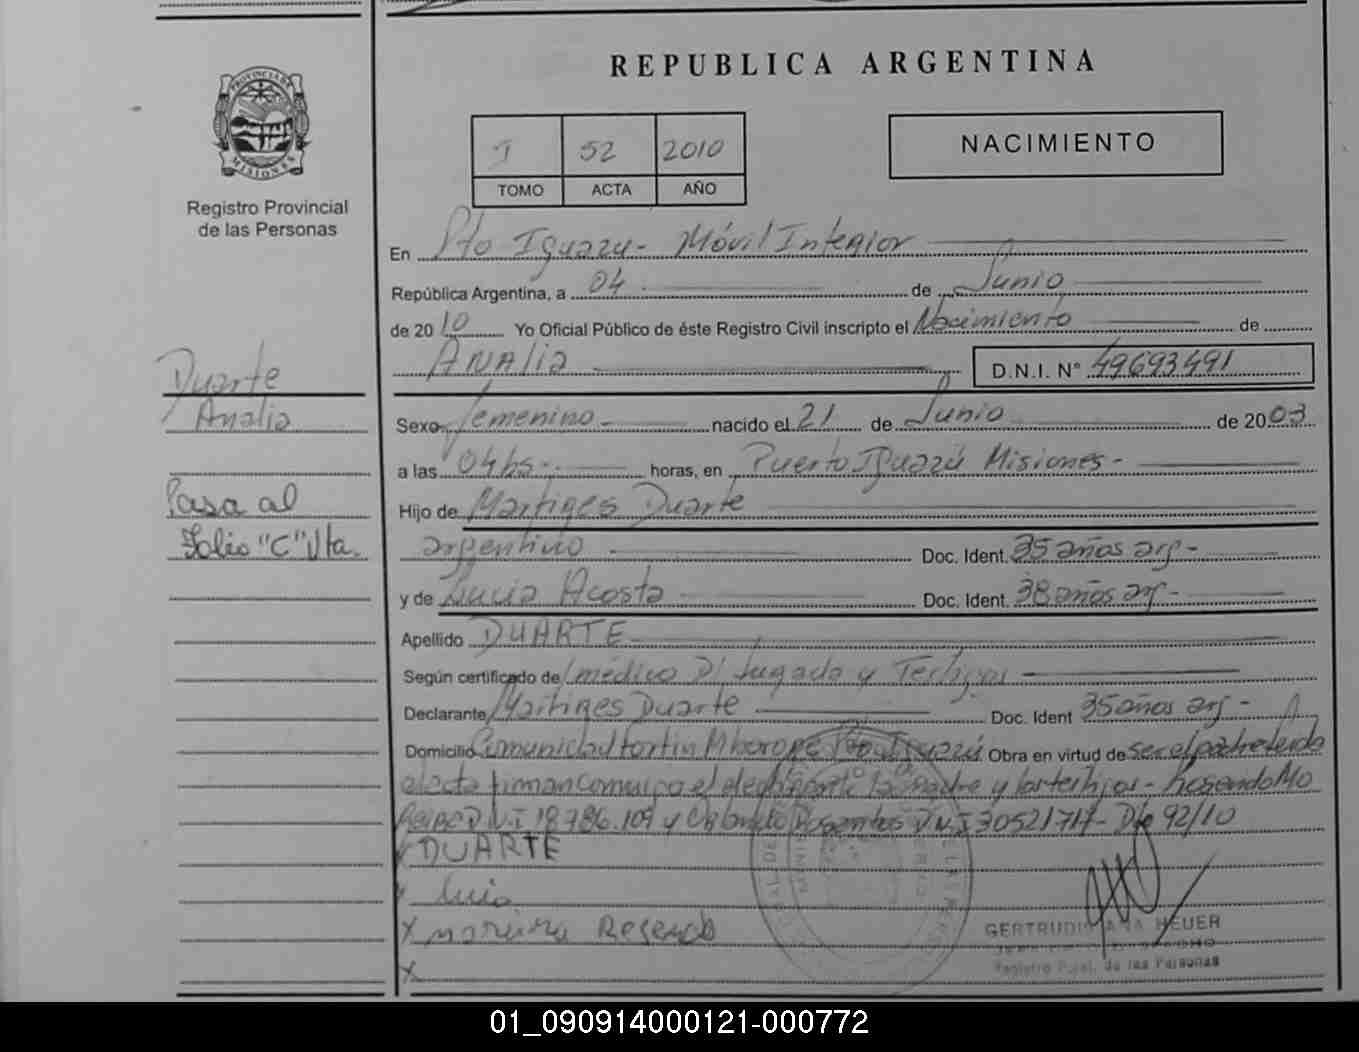 REPUBLICA ARGENTINA
PROVINCIA DE
MISIONES
Registro Provincial
de las Personas
I 52 2010
TOMO ACTA AÑO
NACIMIENTO
En Pto Iguazu - Móvil Interior
República Argentina, a 04 de Junio
de 2010 Yo Oficial Público de éste Registro Civil inscripto el Nacimiento de
de ANALIA D.N.I. N° 49693491
Duarte
Analia
Sexo femenino nacido el 21 de Junio de 2003
a las 04 hs - horas, en Puerto Iguazú Misiones -
Hijo de Martines Duarte
Pasa al
Folio "C" Vta.
argentino Doc. Ident. 35 años arg -
y de Lucia Acosta Doc. Ident. 38 años arg -
Apellido DUARTE
Según certificado de médico D. Juzgado y Testigos
Declarante Martines Duarte Doc. Ident 35 años arg -
Domicilio Comunidad Fortin Mbororé Pto Iguazú Obra en virtud de ser el padre
el acta firman la madre y los testigos - Rosendo Mo
D.N.I 18.786.109 y D.N.I 30521717 - Dto 92/10
DUARTE
Lucia
X moreira Rosendo
X
GERTRUDIS ANA HEUER
Registro Pcial. de las Personas
01_090914000121-000772